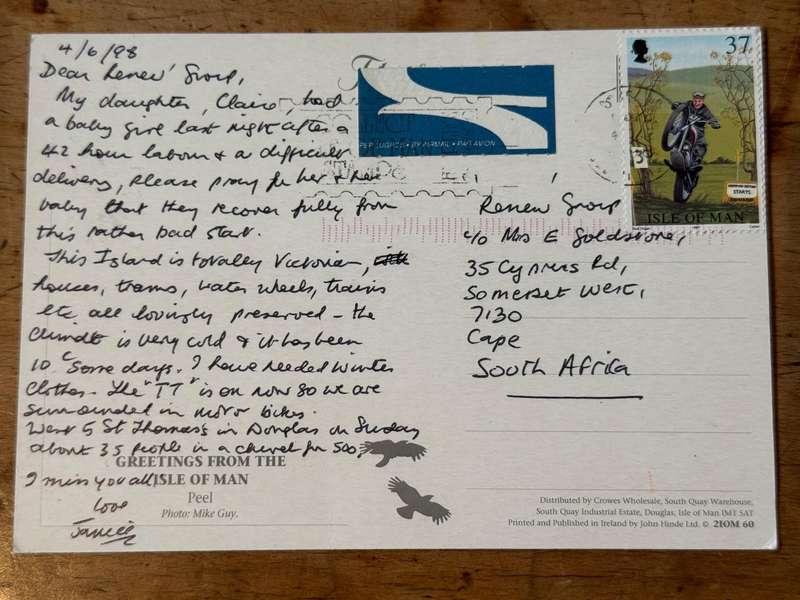 4/6/98
Dear Renew Group,
My daughter, Claire, had
a baby girl last night after a
42 hour labour & a difficult
delivery, please pray for her & her
baby that they recover fully from
this rather bad start.
This Island is totalley Victorian,
houses, trams, water wheels, trains
etc all lovingly preserved – the
climate is very cold & it has been
10° some days. I have needed winter
clothes – The "TT" is on now so we are
surrounded in motor bikes.
Went 5 St Thomas's in Douglas on Sunday
about 35 people in a church for 500,
I miss you all,
love
GREETINGS FROM THE
ISLE OF MAN
Peel
Photo: Mike Guy.
PER LUGPOS • BY AIRMAIL • PAR AVION
37
ISLE OF MAN
STARTS
Renew Group
c/o Mrs E Goldstone,
35 Cyprus Rd,
Somerset West,
7130
Cape
South Africa
Distributed by Crowes Wholesale, South Quay Warehouse,
South Quay Industrial Estate, Douglas, Isle of Man IM1 5AT
Printed and Published in Ireland by John Hinde Ltd. © 2IOM 60